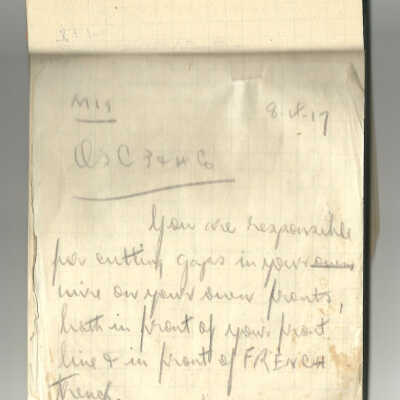 M19
8.4.17
O's C 3 & 4 Co
You are responsible
for cutting gaps in your own
wire on your own fronts,
both in front of your front
line & in front of FRENCH
trench.